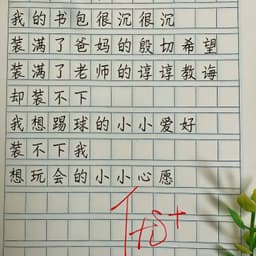 我的书包很沉很沉
装满了爸妈的殷切希望
装满了老师的谆谆教诲
却装不下
我想踢球的小小爱好
装不下我
想玩会的小小心愿